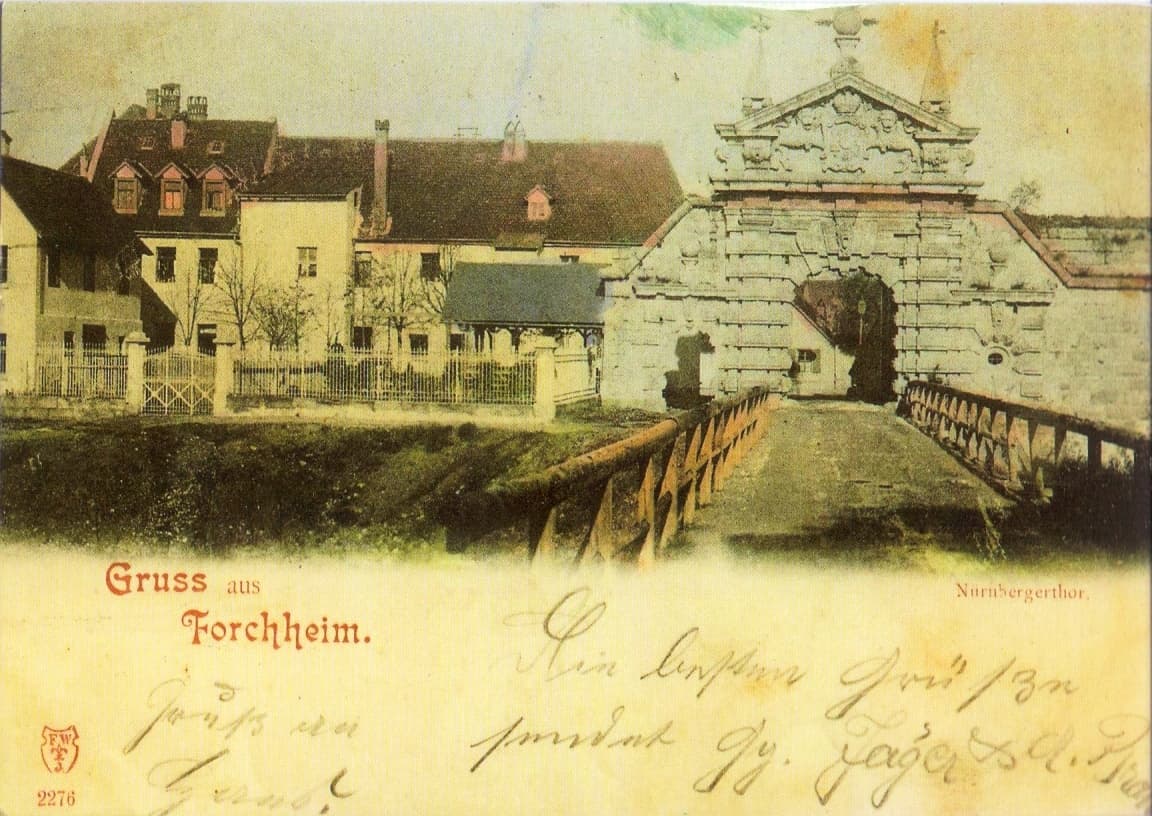 Gruss aus
Forchheim.
Nürnbergerthor.
Die besten Grüße
sendet Gg. Jäger &
Gruß an
F W
3.
2276